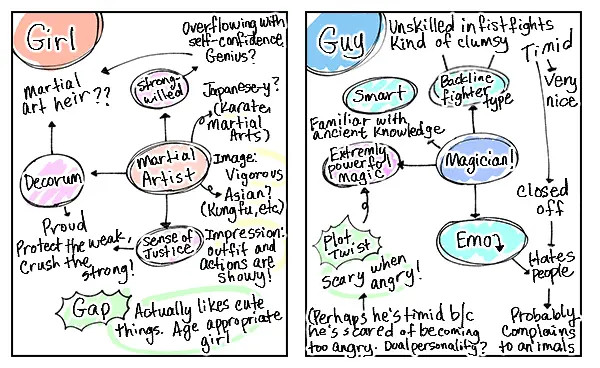 Girl
Overflowing with
self-confidence
Genius?
Martial
art heir??
Strong-
willed
Japanese-y?
(Karate,
martial
Arts)
Martial
Artist
Image:
Vigorous
Asian?
(Kungfu, etc)
Decorum
Proud
Protect the weak,
Crush the
strong!
Sense of
Justice
Impression:
outfit and
actions are
showy!
Gap
Actually likes cute
things. Age appropriate
girl
Guy
Unskilled in fistfights
Kind of clumsy
Timid
Very
nice
Smart
Backline
fighter
type
Familiar with
ancient knowledge
Extremly
powerful
magic
Magician!
Closed
off
Plot
Twist
Scary when
angry!
Emo?
Hates
people
(Perhaps he's timid b/c
he's scared of becoming
too angry. Dual personality?
Probably
complaining
to animals